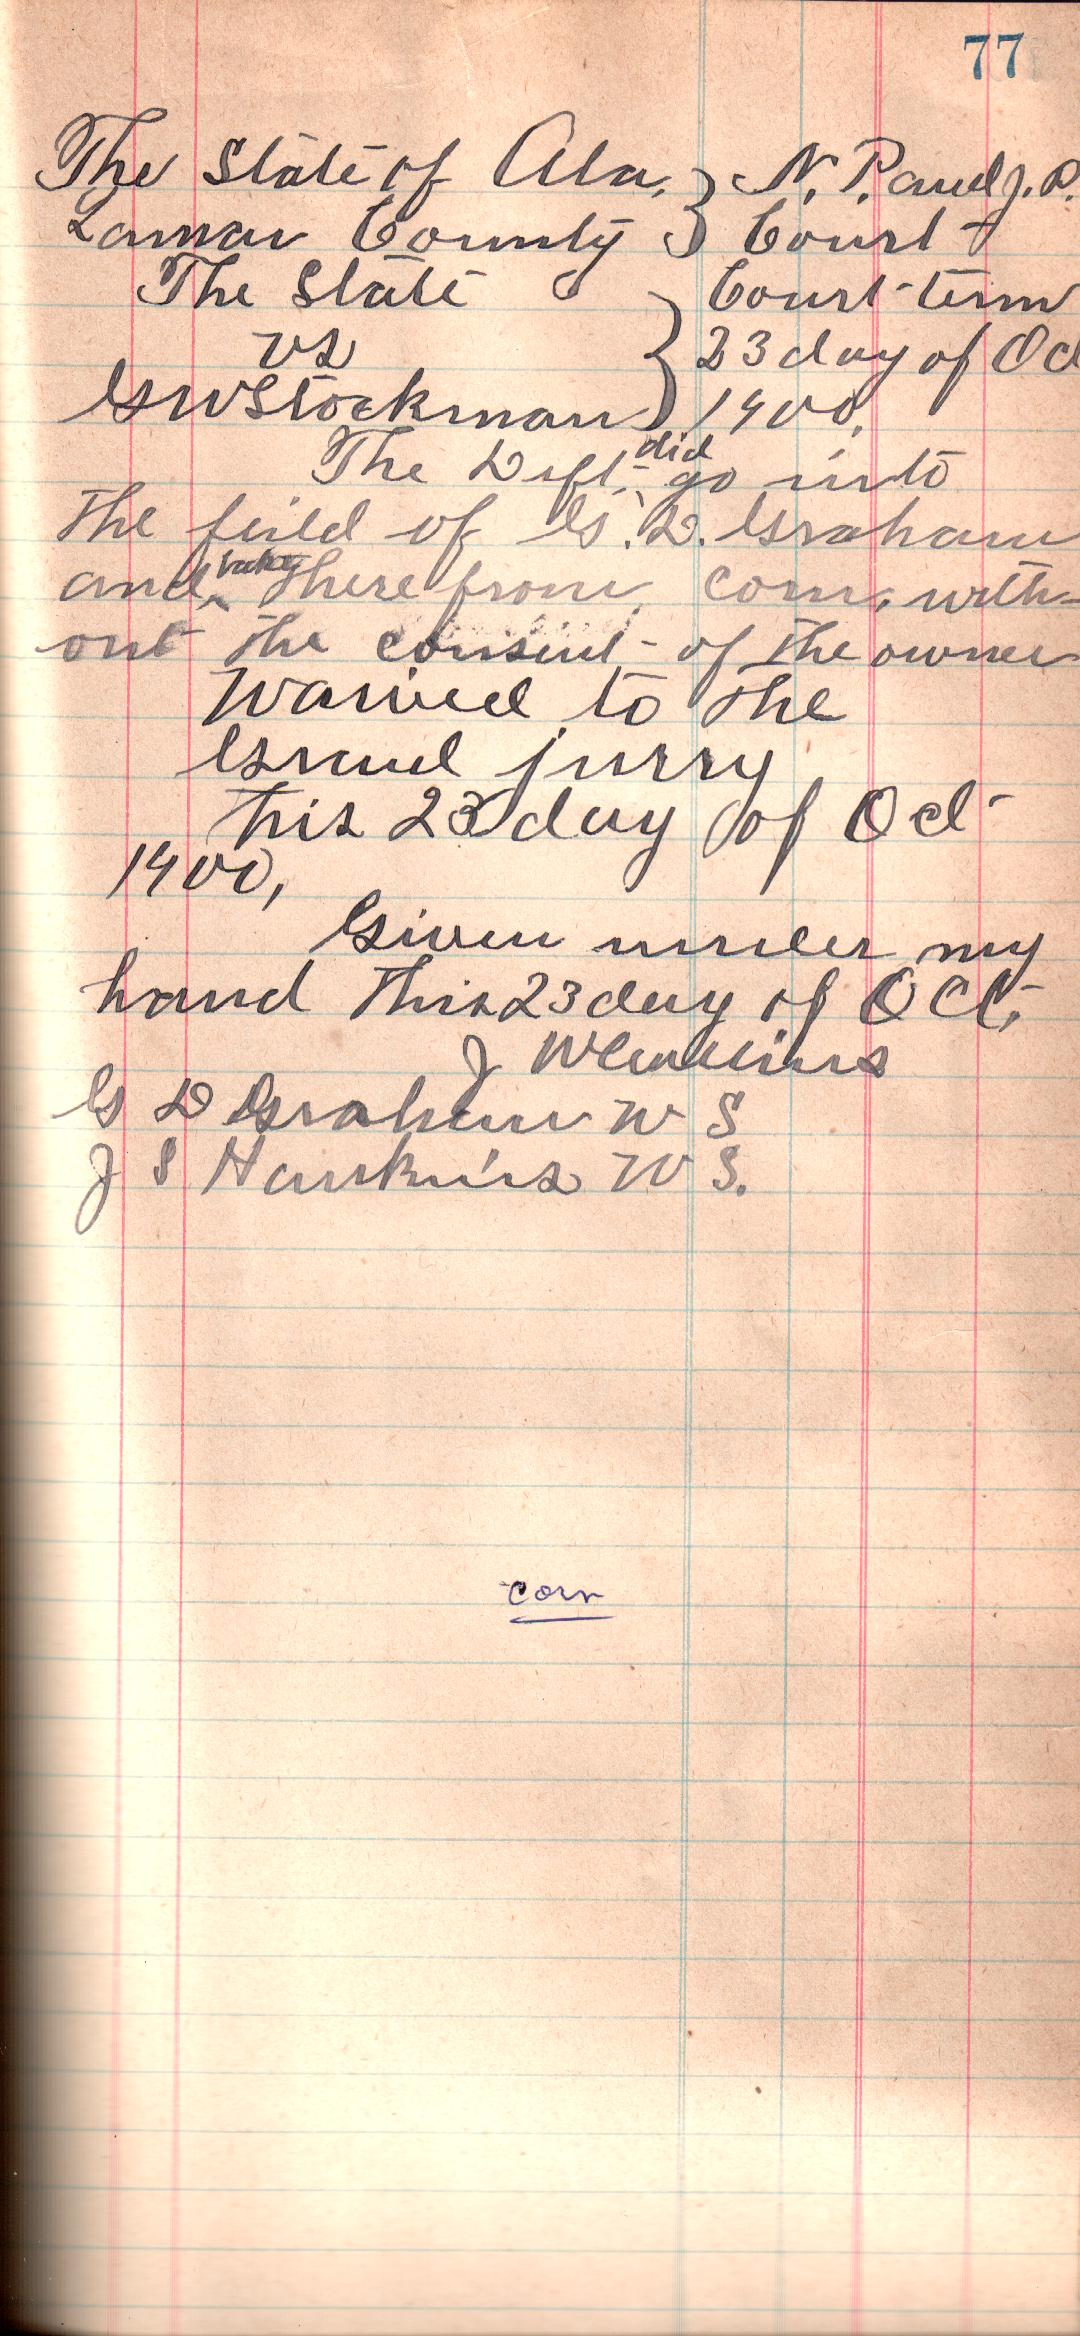 77
The State of Ala. } N. P. and J. P.
Lamar County } Court
The State } Court term
vs } 23 day of Oct
G W Stockman } 1900.
did
The Deft. go into
the feild of G. D. Graham
take
and there from corn, with-
out the consent of the owner
Waived to the
Grand jurry
this 23 day of Oct
1900,
Given under my
hand this 23 day of Oct,
J
G D Graham W S
J S Hankins W S.
corn